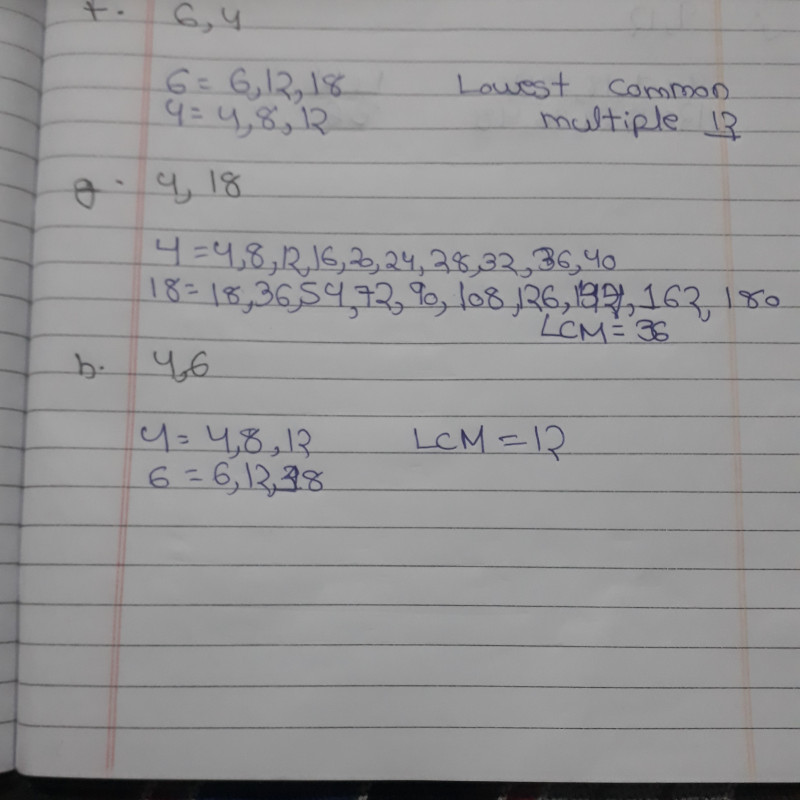 f. 6, 4
6 = 6, 12, 18 Lowest common
4 = 4, 8, 12 multiple 12
g. 4, 18
4 = 4, 8, 12, 16, 20, 24, 28, 32, 36, 40
18 = 18, 36, 54, 72, 90, 108, 126, 162, 180
LCM = 36
h. 4, 6
4 = 4, 8, 12 LCM = 12
6 = 6, 12, 18